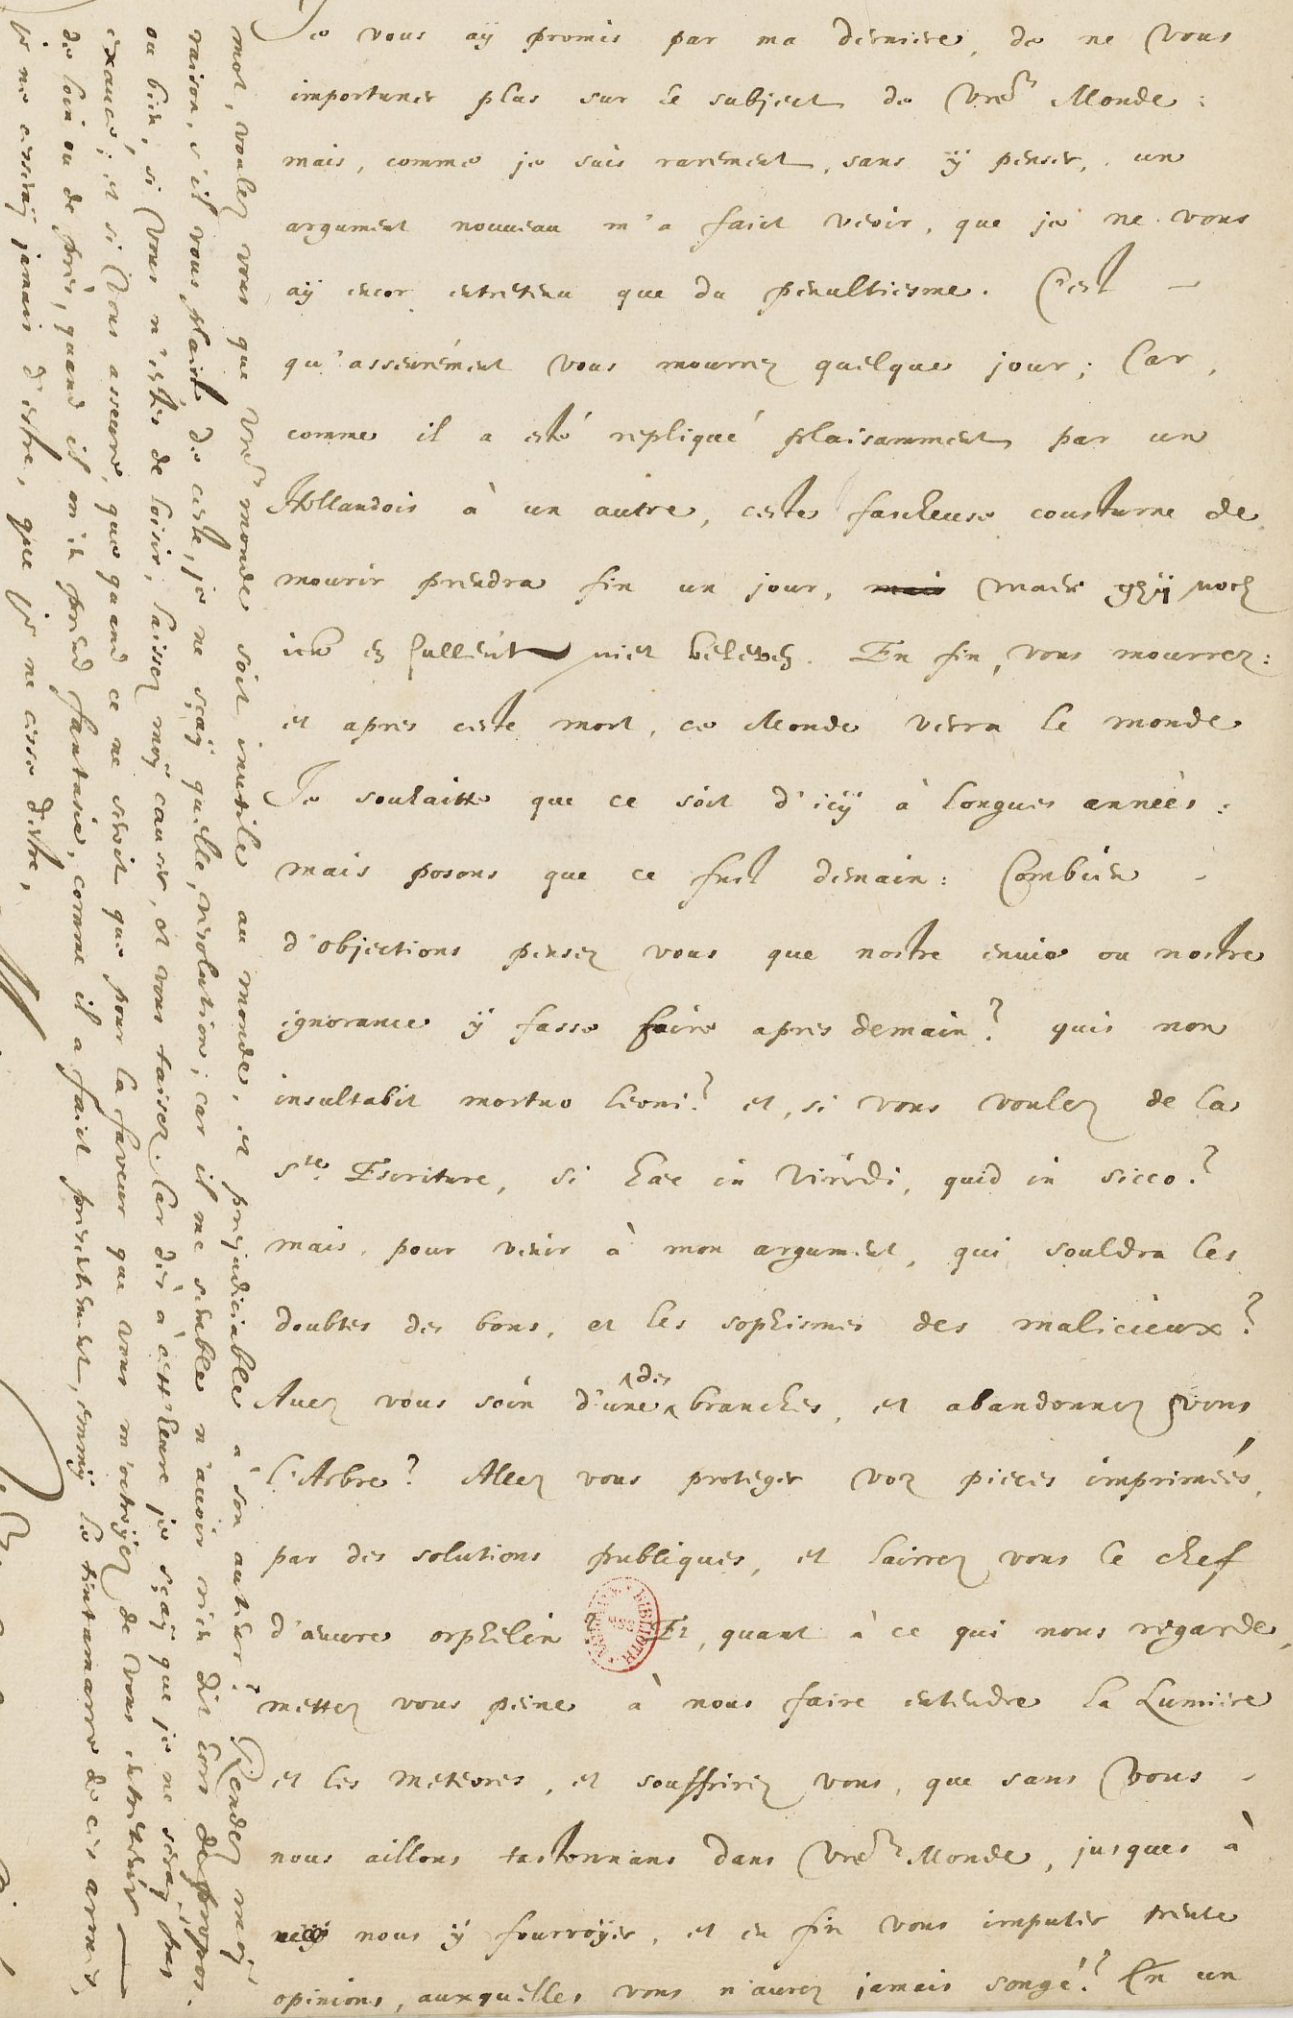 Je vous aÿ promis par ma derniere, de ne vous
importuner plus sur le subject de vre Monde:
mais, comme je suis rarement, sans ÿ penser, un
argument nouveau m'a faict veoir, que je ne vous
aÿ encor entretenu que du penultiesme. C'est
qu'asseurément vous mourrez quelque jour; Car,
comme il a esté repliqué plaisamment par un
Hollandois à un autre, ceste fascheuse coustume de
mourir prendra fin un jour, maer ghÿ noch
ick en sullent niet beleven. En fin, vous mourrez:
et apres ceste mort, ce Monde verra le monde
Je souhaitte que ce soit d'icÿ à longues années:
mais posons que ce fust demain: Combien
d'objections pensez vous que nostre envie ou nostre
ignorance ÿ fasse faire apres demain? quis non
insultabit mortuo leoni? et, si vous voulez de la
Ste. Escriture, si hæc in viridi, quid in sicco?
mais, pour venir à mon argument, qui souldra les
doubtes des bons, et les sophismes des malicieux?
Avez vous soin d'une des branches, et abandonnez vous
l'Arbre? Allez vous proteger voz pieces imprimées,
par des solutions publiques, et lairrez vous le chef
d'œuvre orphelin? Et, quant à ce qui nous regarde,
mettez vous peine à nous faire entendre la Lumiere
et les meteores, et souffrirez vous, que sans vous
nous aillons tastonnans dans vre Monde, jusques à
nous ÿ fourvoÿer, et en fin vous imputer trente
opinions, auxquelles vous n'aurez jamais songé? En un
mot, voulez vous que vre monde soit inutile au monde, et prejudiciable à son autheur? Rendez moÿ
raison, s'il vous plaist de ceste, je ne sçaÿ quelle, resolution; car il me semble n'avoir rien dit hors de propos.
ou bien, si vous n'estes de loisir, laissez moÿ causer, et vous taisez. Car dès à cett'heure je sçaÿ que je ne seraÿ pas
exaucé; et si vous asseure, que quand ce ne seroit que pour la faveur que vous m'octroÿez de vous entretenir
de loin ou de près, quand il m'en prend fantasie, comme il a faict presentement, emmÿ le tintamarre de ces armes,
je ne cesseraÿ jamais d'estre, que je ne cesse d'estre,